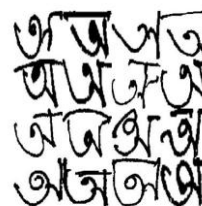 অ অ অ অ
অ অ অ অ
অ অ অ অ
অ অ অ অ